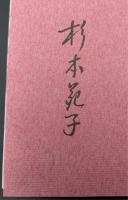 杉本苑子